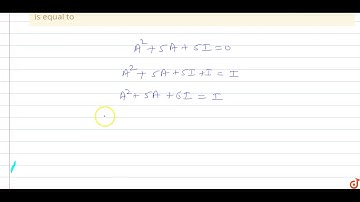 is equal to
A² + 5A + 5I = 0
A² + 5A + 5I + I = I
A² + 5A + 6I = I